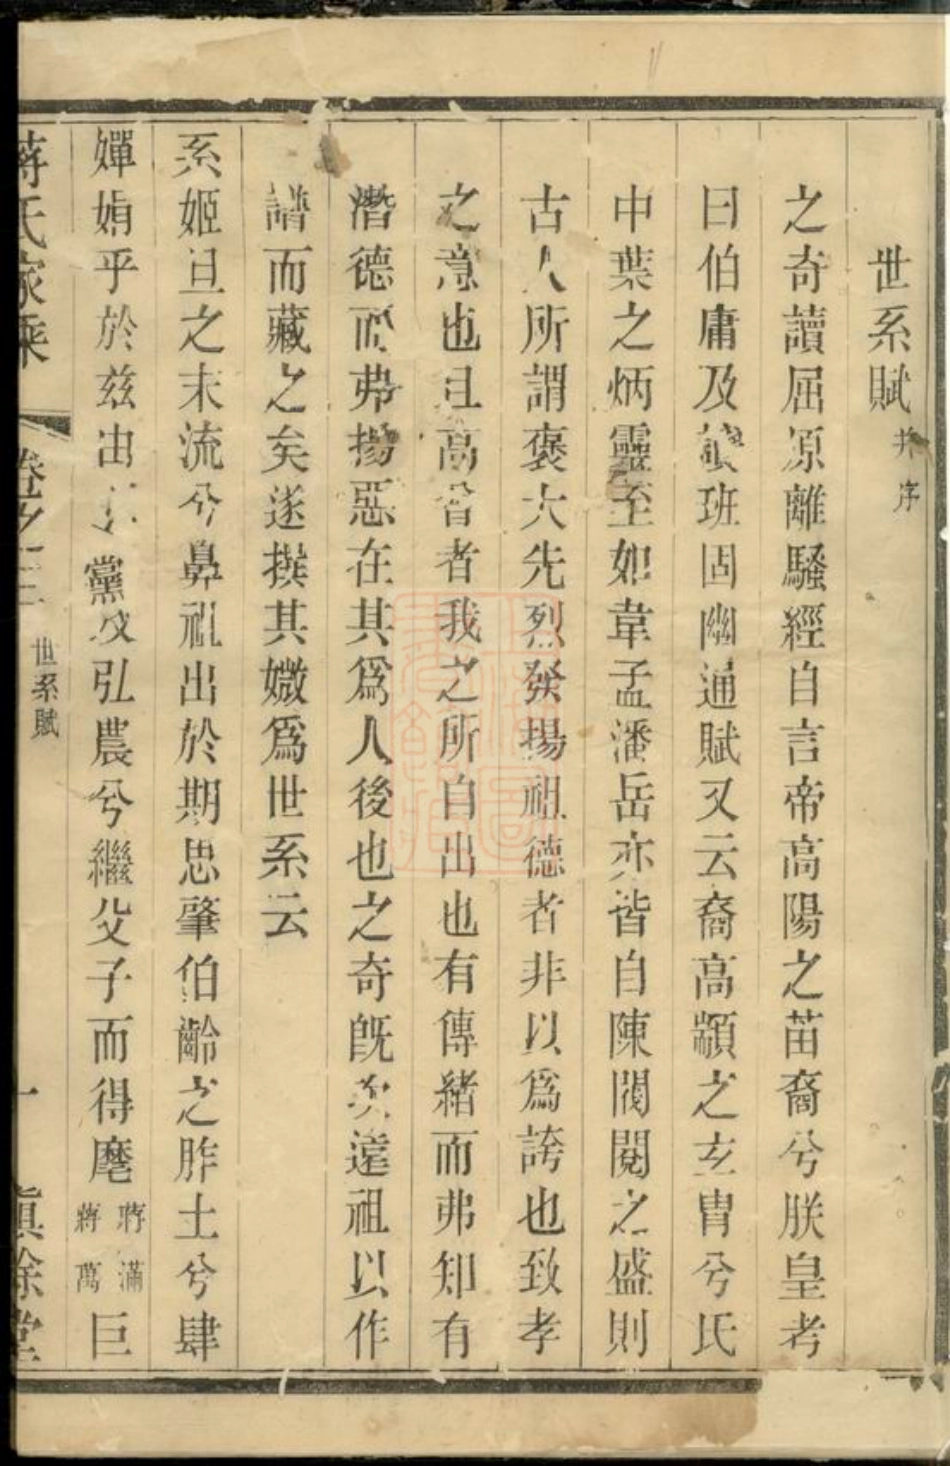 世系賦并序
之奇讀屈原離騷經自言帝高陽之苗裔兮朕皇考
曰伯庸及讀班固幽通賦又云裔高顓之玄胄兮氏
中葉之炳靈至如韋孟潘岳亦皆自陳閥閱之盛則
古人所謂褒大先烈發揚祖德者非以為誇也致孝
之意也且高曾者我之所自出也有傳緒而弗知有
潛德而弗揚惡在其爲人後也之奇旣次遠祖以作
譜而藏之矣遂撰其媺爲世系云
系姬旦之末流兮鼻祖出於期思肇伯齡之胙土兮肆
嬋娟乎於茲由 黨及弘農兮繼父子而得麾蔣滿蔣萬巨
蔣氏家乘 卷之三 世系賦 一 慎餘堂